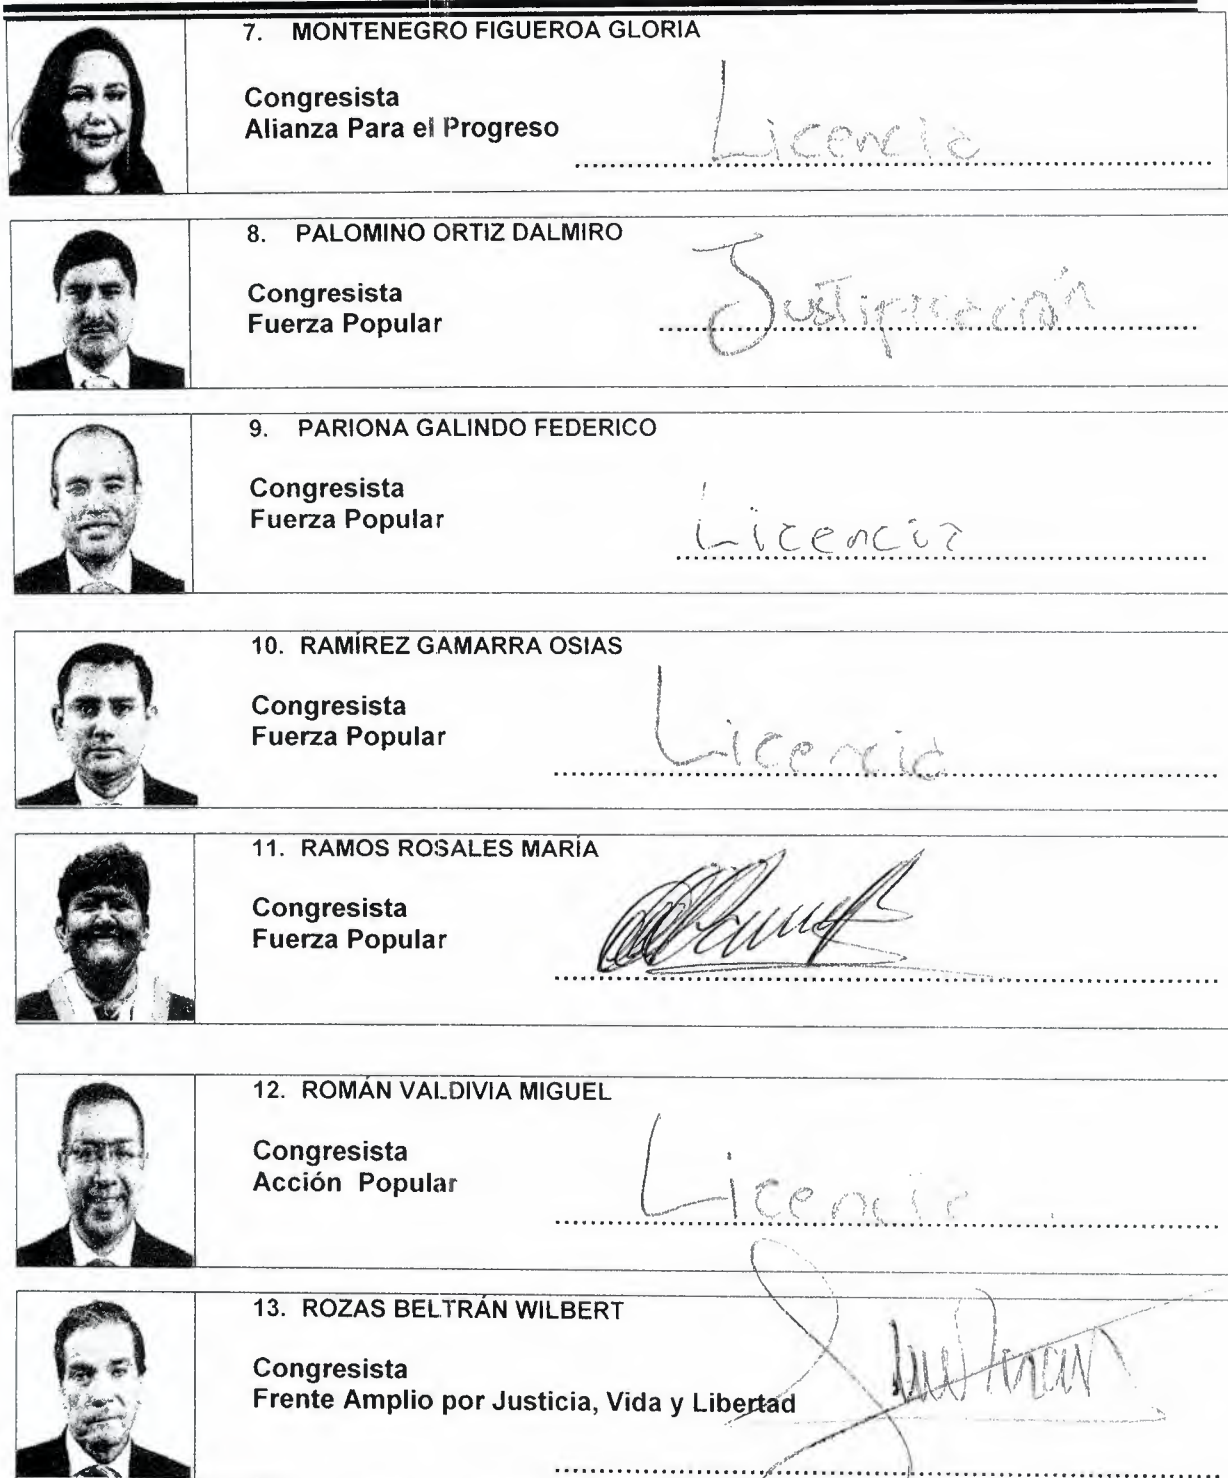 7. MONTENEGRO FIGUEROA GLORIA
Congresista
Alianza Para el Progreso
Licencia
8. PALOMINO ORTIZ DALMIRO
Congresista
Fuerza Popular
Justificación
9. PARIONA GALINDO FEDERICO
Congresista
Fuerza Popular
Licencia
10. RAMÍREZ GAMARRA OSIAS
Congresista
Fuerza Popular
Licencia
11. RAMOS ROSALES MARÍA
Congresista
Fuerza Popular
12. ROMÁN VALDIVIA MIGUEL
Congresista
Acción Popular
Licencia
13. ROZAS BELTRÁN WILBERT
Congresista
Frente Amplio por Justicia, Vida y Libertad